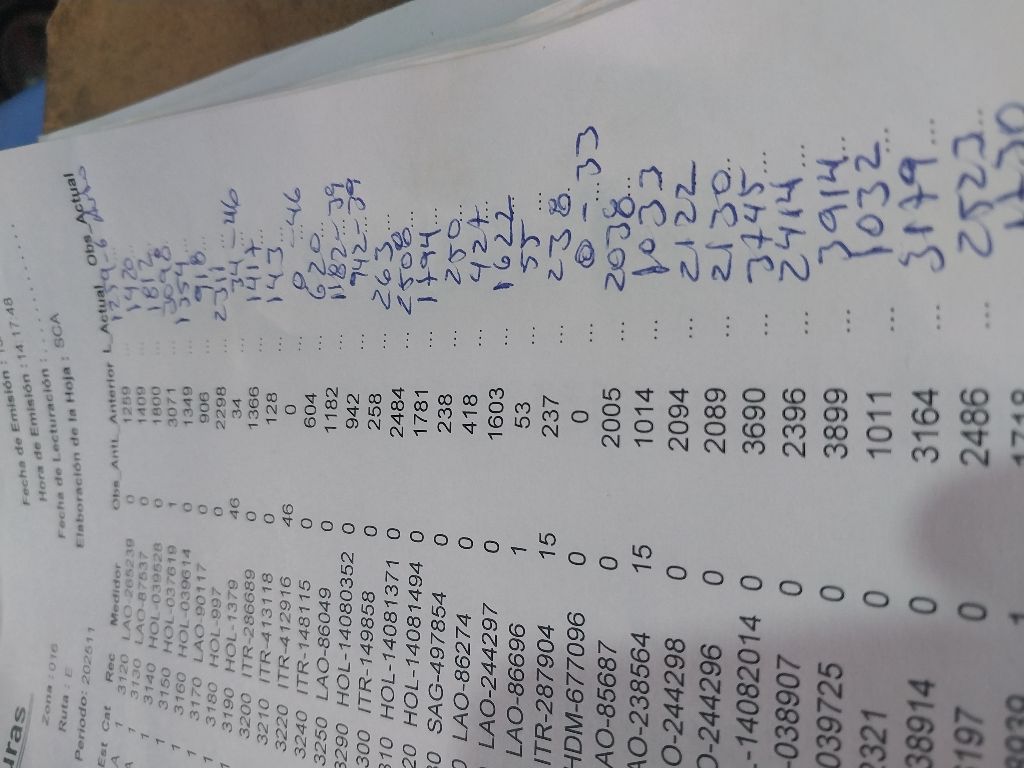 uras
Fecha de Emisión :
Zona : 016 Hora de Emisión : 14:17:48
Ruta : E Fecha de Lecturación :
Periodo: 202511 Elaboración de la Hoja : SCA
Est Cat Rec Medidor Obs_Ant L_Anterior L_Actual Obs-Actual
A 1 3120 LAO-265239 0 1259 ...
A 1 3130 LAO-87537 0 1409 ... 1420
1 3140 HOL-039528 0 1800 ... 1817
1 3150 HOL-037619 1 3071 ... 3098
1 3160 HOL-039614 0 1349 ... 1354
1 3170 LAO-90117 0 906 ... 918
1 3180 HOL-997 0 2298 ... 2311
1 3190 HOL-1379 46 34 ... 34 - 46
3200 ITR-286689 0 1366 ... 1417
3210 ITR-413118 0 128 ... 143
3220 ITR-412916 46 0 ... 0 - 46
3240 ITR-148115 0 604 ... 620
3250 LAO-86049 0 1182 ... 1182 - 39
3290 HOL-14080352 0 942 ... 942 - 39
300 ITR-149858 0 258 ... 263
310 HOL-14081371 0 2484 ... 2508
20 HOL-14081494 0 1781 ... 1794
0 SAG-497854 0 238 ... 250
LAO-86274 0 418 ... 427
LAO-244297 0 1603 ... 1622
LAO-86696 1 53 ... 55
ITR-287904 15 237 ... 238
HDM-677096 0 0 ... 0 - 33
AO-85687 0 2005 ... 2038
AO-238564 15 1014 ... 1033
O-244298 0 2094 ... 2122
O-244296 0 2089 ... 2130
-14082014 0 3690 ... 3745
-038907 0 2396 ... 2414
039725 0 3899 ... 3914
321 0 1011 ... 1032
38914 0 3164 ... 3179
197 0 2486 ... 2523
8939 1 1718 1730